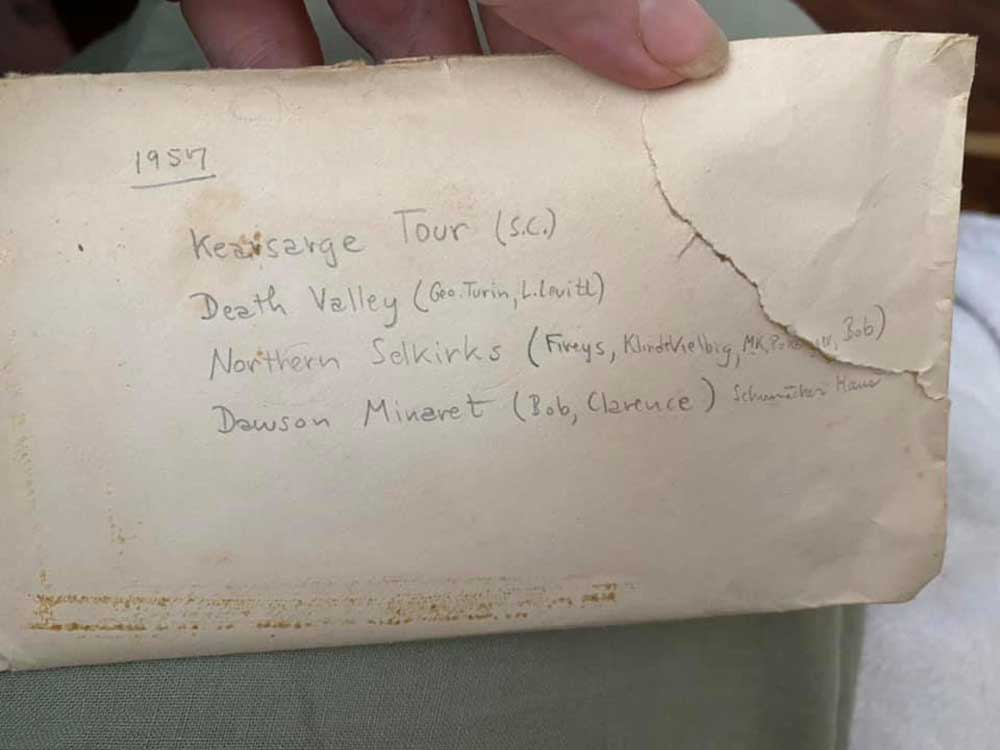 1957
Kearsarge Tour (S.C.)
Death Valley (Geo. Turin, L. Levitt)
Northern Selkirks (Fireys, Klindt Vielbig, MK, Bob)
Dawson Minaret (Bob, Clarence) Schumacher Haus